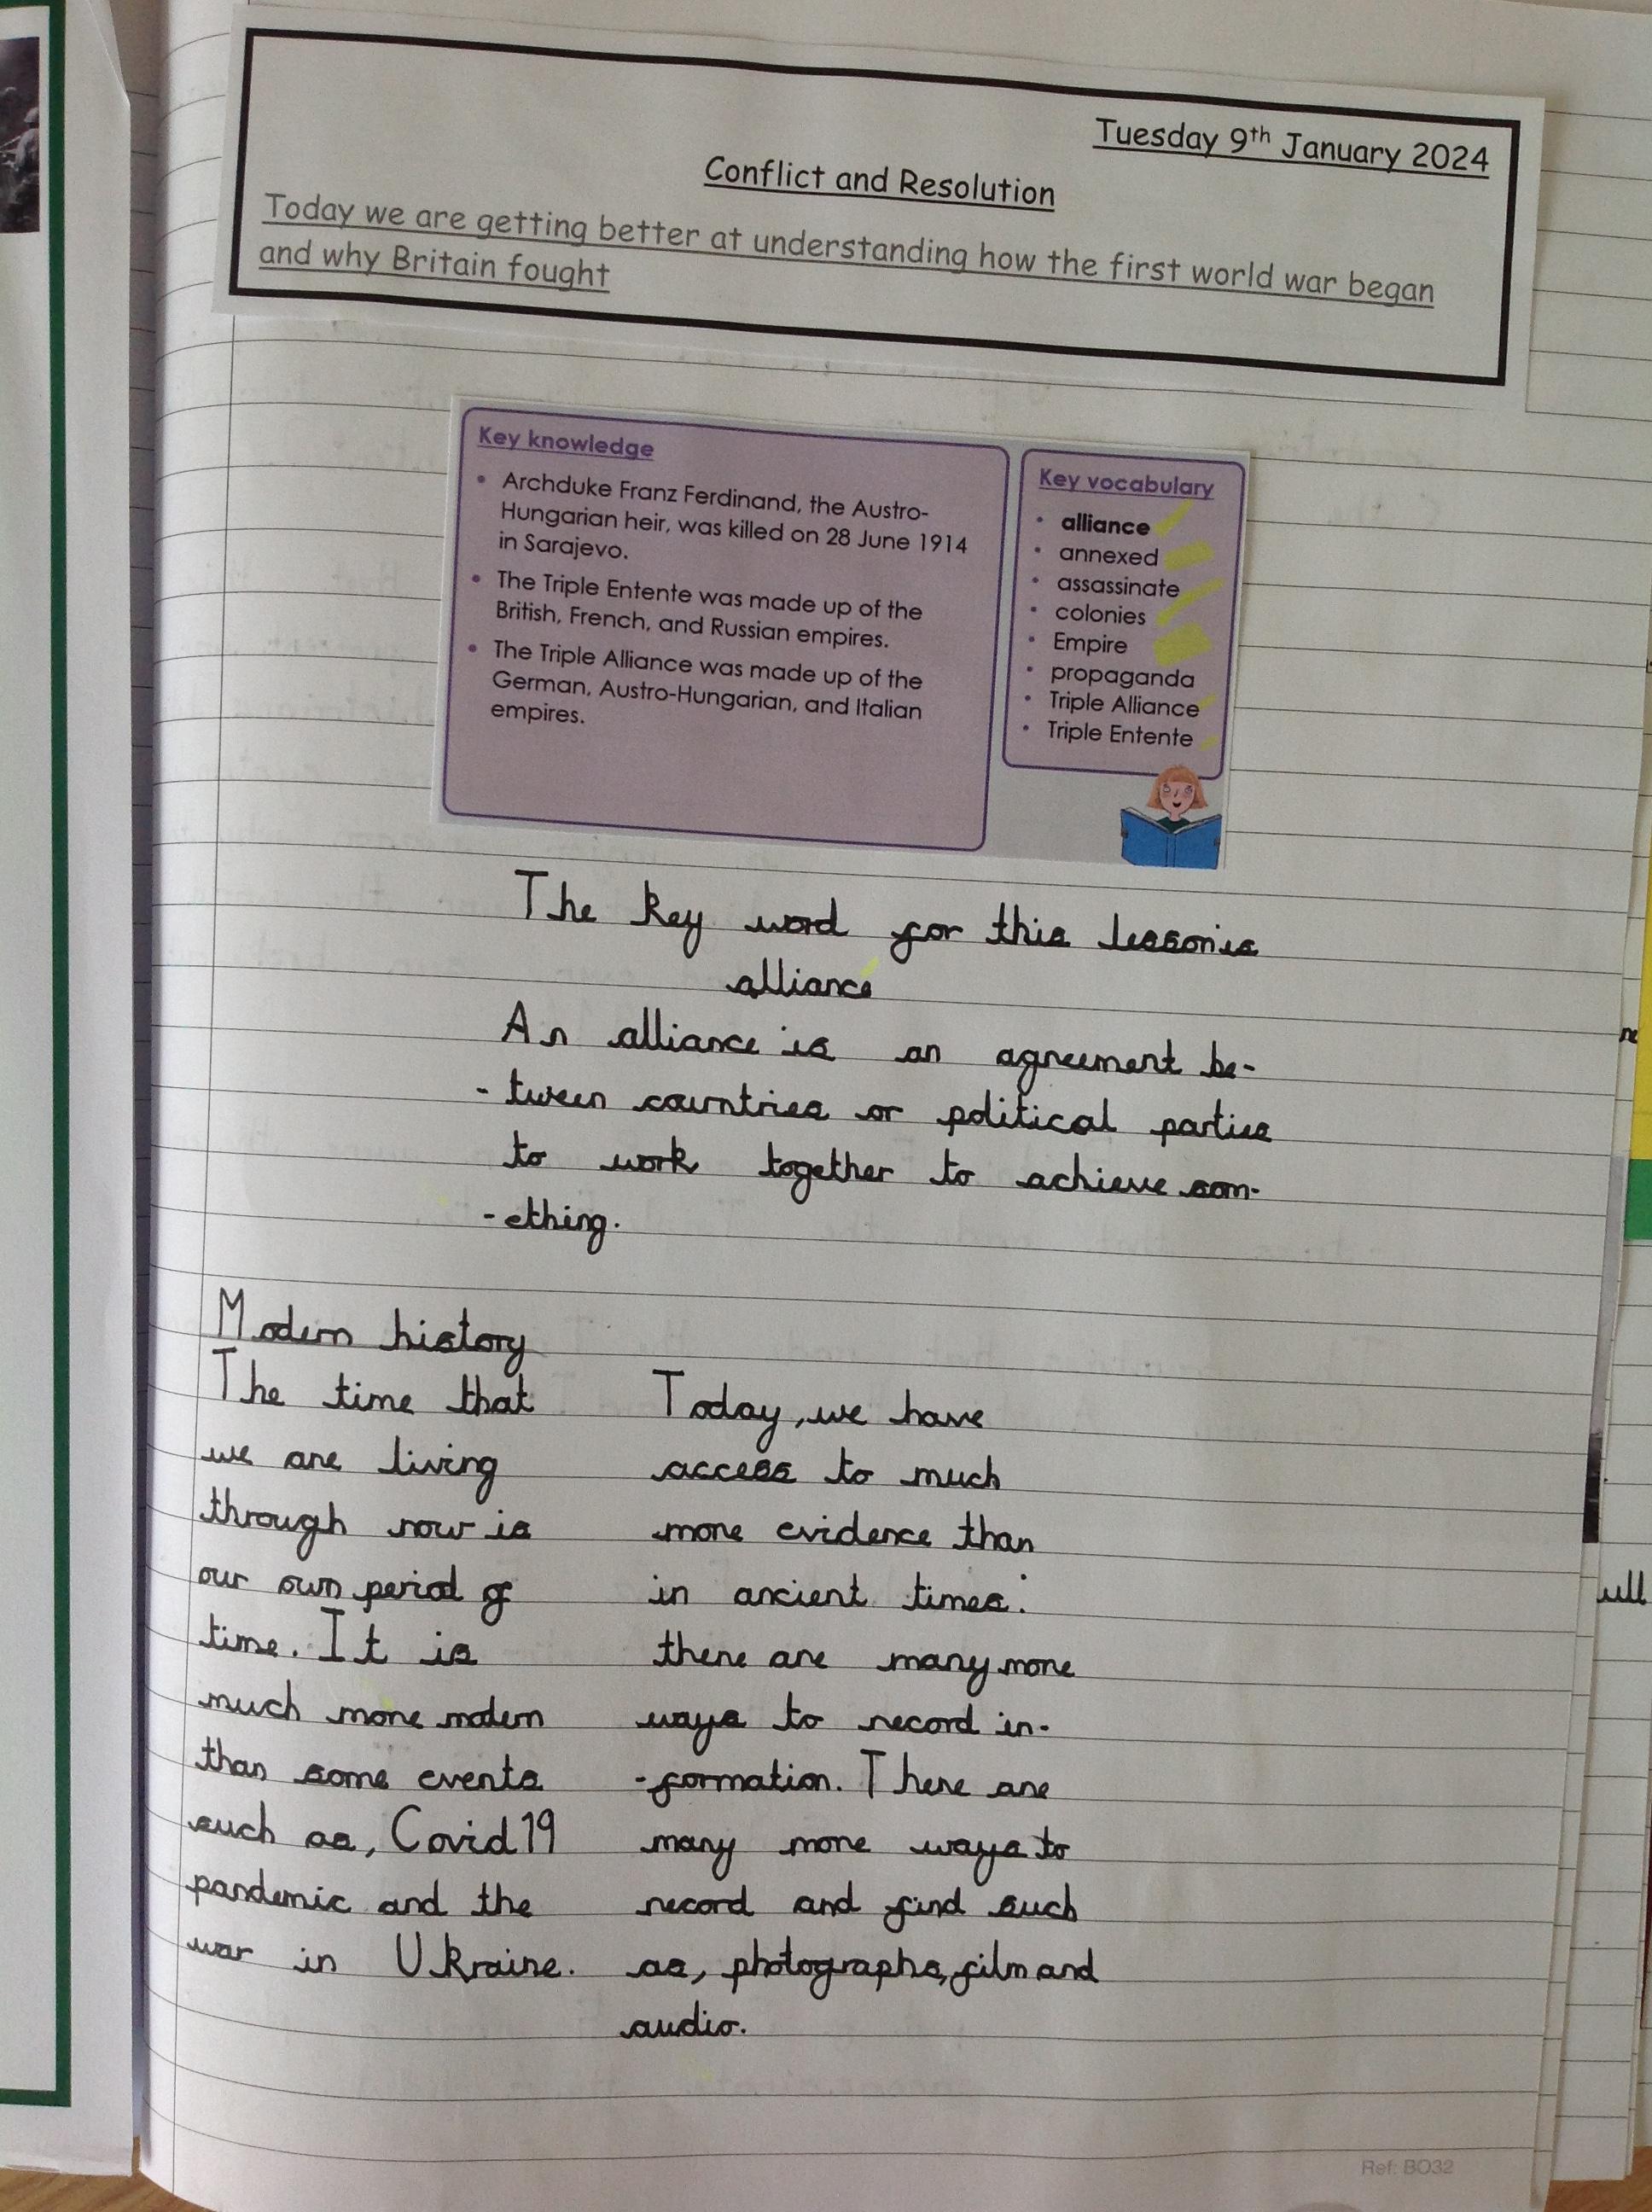 Tuesday 9th January 2024
Conflict and Resolution
Today we are getting better at understanding how the first world war began
and why Britain fought
Key knowledge
• Archduke Franz Ferdinand, the Austro-
Hungarian heir, was killed on 28 June 1914
in Sarajevo.
• The Triple Entente was made up of the
British, French, and Russian empires.
• The Triple Alliance was made up of the
German, Austro-Hungarian, and Italian
empires.
Key vocabulary
• alliance
• annexed
• assassinate
• colonies
• Empire
• propaganda
• Triple Alliance
• Triple Entente
The key word for this lesson is
alliance
An alliance is an agreement be-
-tween countries or political parties
to work together to achieve som-
-ething.
Modern history
The time that
we are living
through now is
our own period of
time. It is
much more modern
than some events
such as, Covid 19
pandemic and the
war in Ukraine.
Today, we have
access to much
more evidence than
in ancient times:
there are many more
ways to record in-
-formation. There are
many more ways to
record and find such
as, photographs, film and
audio.
ull
Ref: BO32